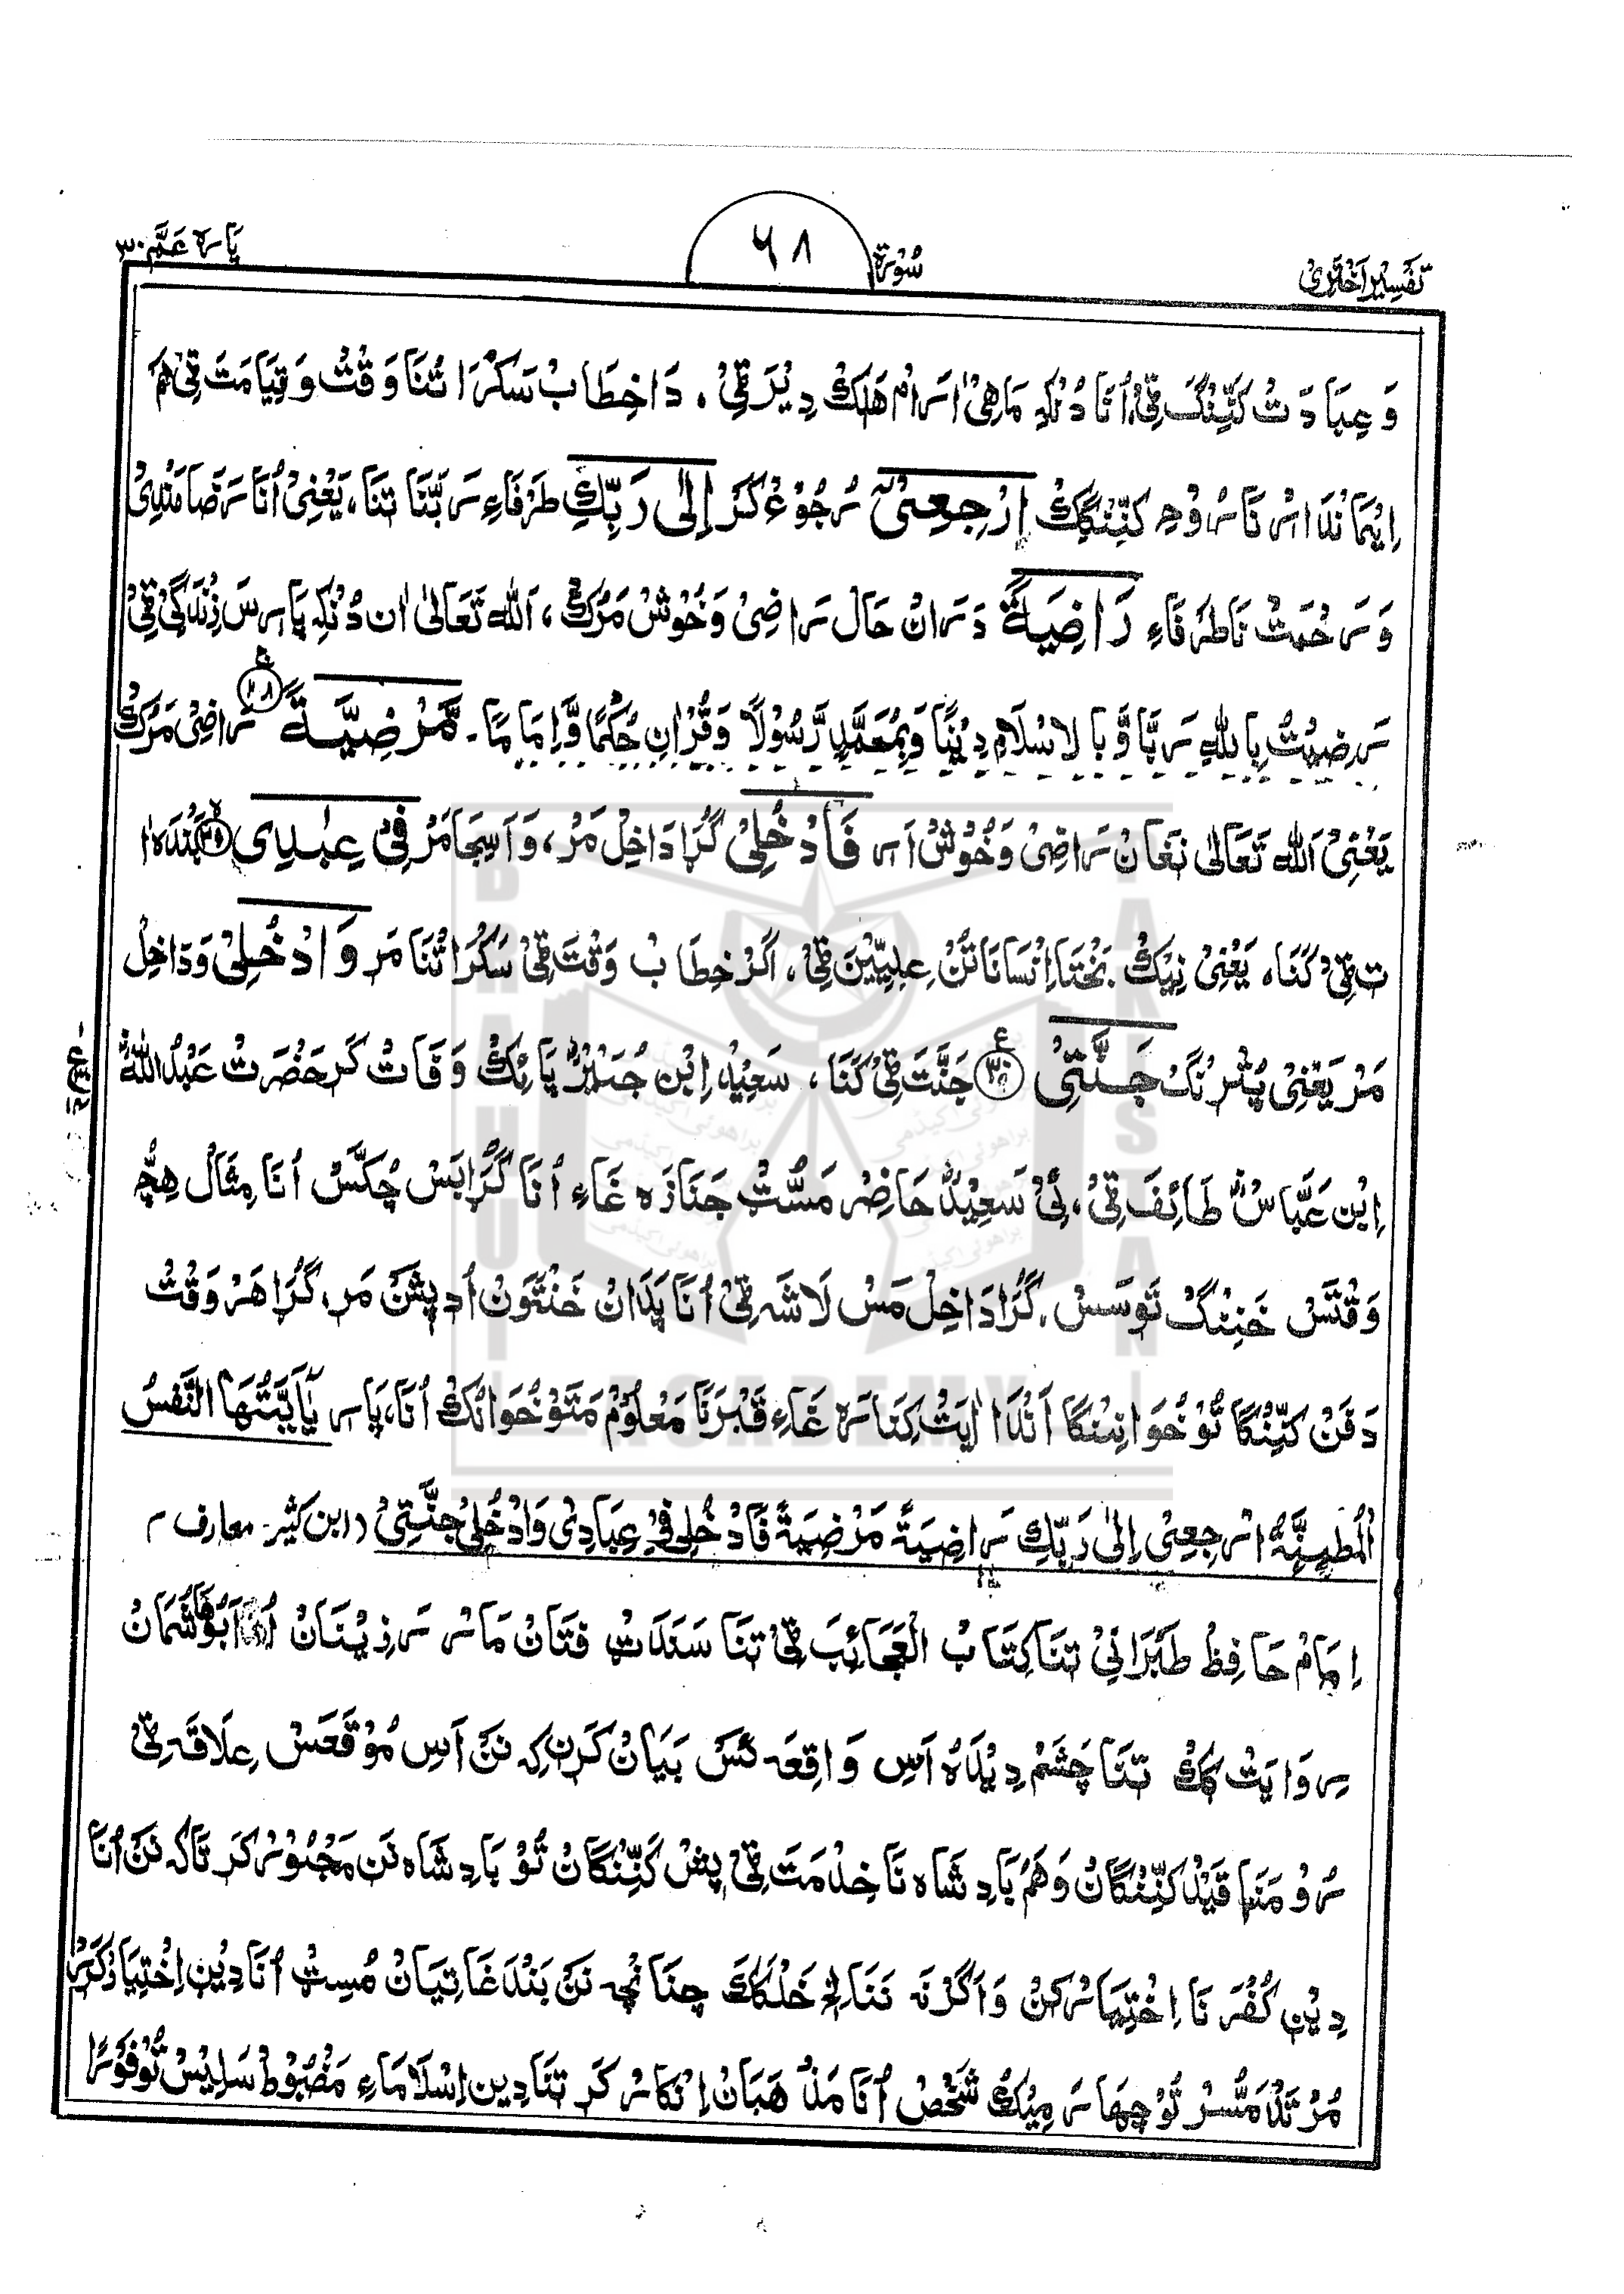 تَفْسِیْرِ اَخْتَرِیْ
سُوْرَة
۶۸
پاره عَمَّ ۳۰
وَعِبَادَتْ كَنِّنْگ ٹِیْ اُنَا دُنْكِه مَاهِیْ اَرَام هَلِكْ دِیْرَ ٹِیْ ، دَا خِطَابْ سَكْرَاتُنَا وَقْتْ وَقِیَامَتْ ٹِیْ هَمْ
اِیْمَانْدَارْ نَا رُوْحِ كَنِّنْگِكْ اِرْجِعِیْٓ رُجُوْعْ كَرْ اِلٰى رَبِّكِ طَرْفَاءِ رَبَّنَا تَنَا، یَعْنِیْ اُنَا رَضَامَنْدِیْ
وَرَحْمَتْ نَا طَرْفَاءِ رَاضِيَةً دَرَانْ حَال رَاضِیْ وَخُوْشْ مَرُكْ، اَللّٰه تَعَالٰى اٰن دُنْكِه پَارِسَ زِنْدَگِیْ ٹِیْ
رَضِيْتُ بِاللّٰهِ رَبًّا وَّبِالْاِسْلَامِ دِيْنًا وَبِمُحَمَّدٍ رَّسُوْلًا وَقُرْاٰنِ حُكْمًا وَّاِمَامًا۔ مَّرْضِيَّةً ۚ ۲۸ رَاضِیْ مَرُكْ
یَعْنِیْ اَللّٰه تَعَالٰى نَغَانْ رَاضِیْ وَخُوْشْ اَرِ فَادْخُلِیْ گُڑَا دَاخِلْ مَرْ، وَاَسِجَا مَرْ فِیْ عِبٰدِی ۲۹ بَنْدَه اٰ
تِ ٹِیْ كَنَا، یَعْنِیْ نِیْكْ بَخْتَا اِنْسَانَاتُنْ عِلِیِّیْنَ ٹِیْ، اَگَرْ خِطَابْ وَقْتَ ٹِیْ سَكْرَاتُنَا مَرِ وَادْخُلِیْ وَدَاخِلْ
مَرْ یَعْنِیْ پُتْرِنْگ جَنَّتِیْ ۳۰ جَنَّتَ ٹِیْ كَنَا، سَعِیْدْ اِبْنِ جُبَیْرْ پَائِكْ وَفَاتْ كَرِ حَضْرَتْ عَبْدُ اللّٰهْ
اِبْنِ عَبَّاسْ طَائِفَ ٹِیْ، ئِیْ سَعِیْدْ حَاضِرْ مَسُّٹْ جَنَازَه غَاءِ اُنَا گُڑَا بَسْ چُكَّسْ اُنَا مِثَالْ هِچْ
وَقْتَسْ خَنِنْگ تَوَسَسْ. گُڑَا دَاخِلْ مَسْ لَاشَه ٹِیْ اُنَا پَدَانْ خَنْتَوَنْ اُدِ پِشَنْ مَرِ، گُڑَا هَرْ وَقْتْ
دَفَنْ كَنِّنْگَا تُوْ خُوَانِنْگَا اَنْدَا اٰیَتْ كِنَارَه غَاءِ قَبْرَنَا مَعْلُوْمْ مَتَوْ خُوَانُكْ اُنَا، پَارِ يٰٓاَيَّتُهَا النَّفْسُ
الْمُطْمَئِنَّةُ ارْجِعِیْ اِلٰى رَبِّكِ رَاضِيَةً مَرْضِيَةً فَادْخُلِیْ فِیْ عِبَادِیْ وَادْخُلِیْ جَنَّتِیْ (ابن كثیر۔ معارف)
اِمَامْ حَافِظْ طَبْرَانِیْ تَنَا كِتَابْ الْعَجَائِبَ ٹِیْ تَنَا سَنَدَتْ فَتَانْ مَارْ رَزِیْنَانْ اَبُوْهَاشْمَانْ
رِوَایَتْ كَكْ تَنَا چَشَمْ دِیْدَهُ اَسِ وَاقِعَه ئَسْ بَیَانْ كَرِنْ كِه نَنْ اَسِ مُوْقَعَسْ عِلَاقَه ٹِیْ
رُوْمَنَا قَیْدْ كَنِّنْگَانْ وَهَمْ بَادِشَاه نَا خِدْمَتَ ٹِیْ پِشْ كَنِّنْگَانْ تُوْ بَادِشَاه نَنِ مَجْبُوْرْ كَرِ تَاكِه نَنْ اُنَا
دِیْنِ كُفْرَنَا اِخْتِیَارْ كِنْ وَاَگَرْنَه نَنَا خَلْكَكْ چِنَانْچِه نَنْ بَنْدَغَاتِیَانْ مُسِٹْ اُنَا دِیْنِ اِخْتِیَارْ كَرِرْ
مُرْتَدْ مَسُّرْ تُوْ چِهَارَمِیْكُ شَخْصْ اُنَا مَذْهَبَانْ اِنْكَارْ كَرِ تَنَا دِیْنِ اِسْلَامَاءِ مَضْبُوْطْ سَلِیْسْ تُوْ فَوْرًا
BRAHUI
ACADEMY
PAKISTAN